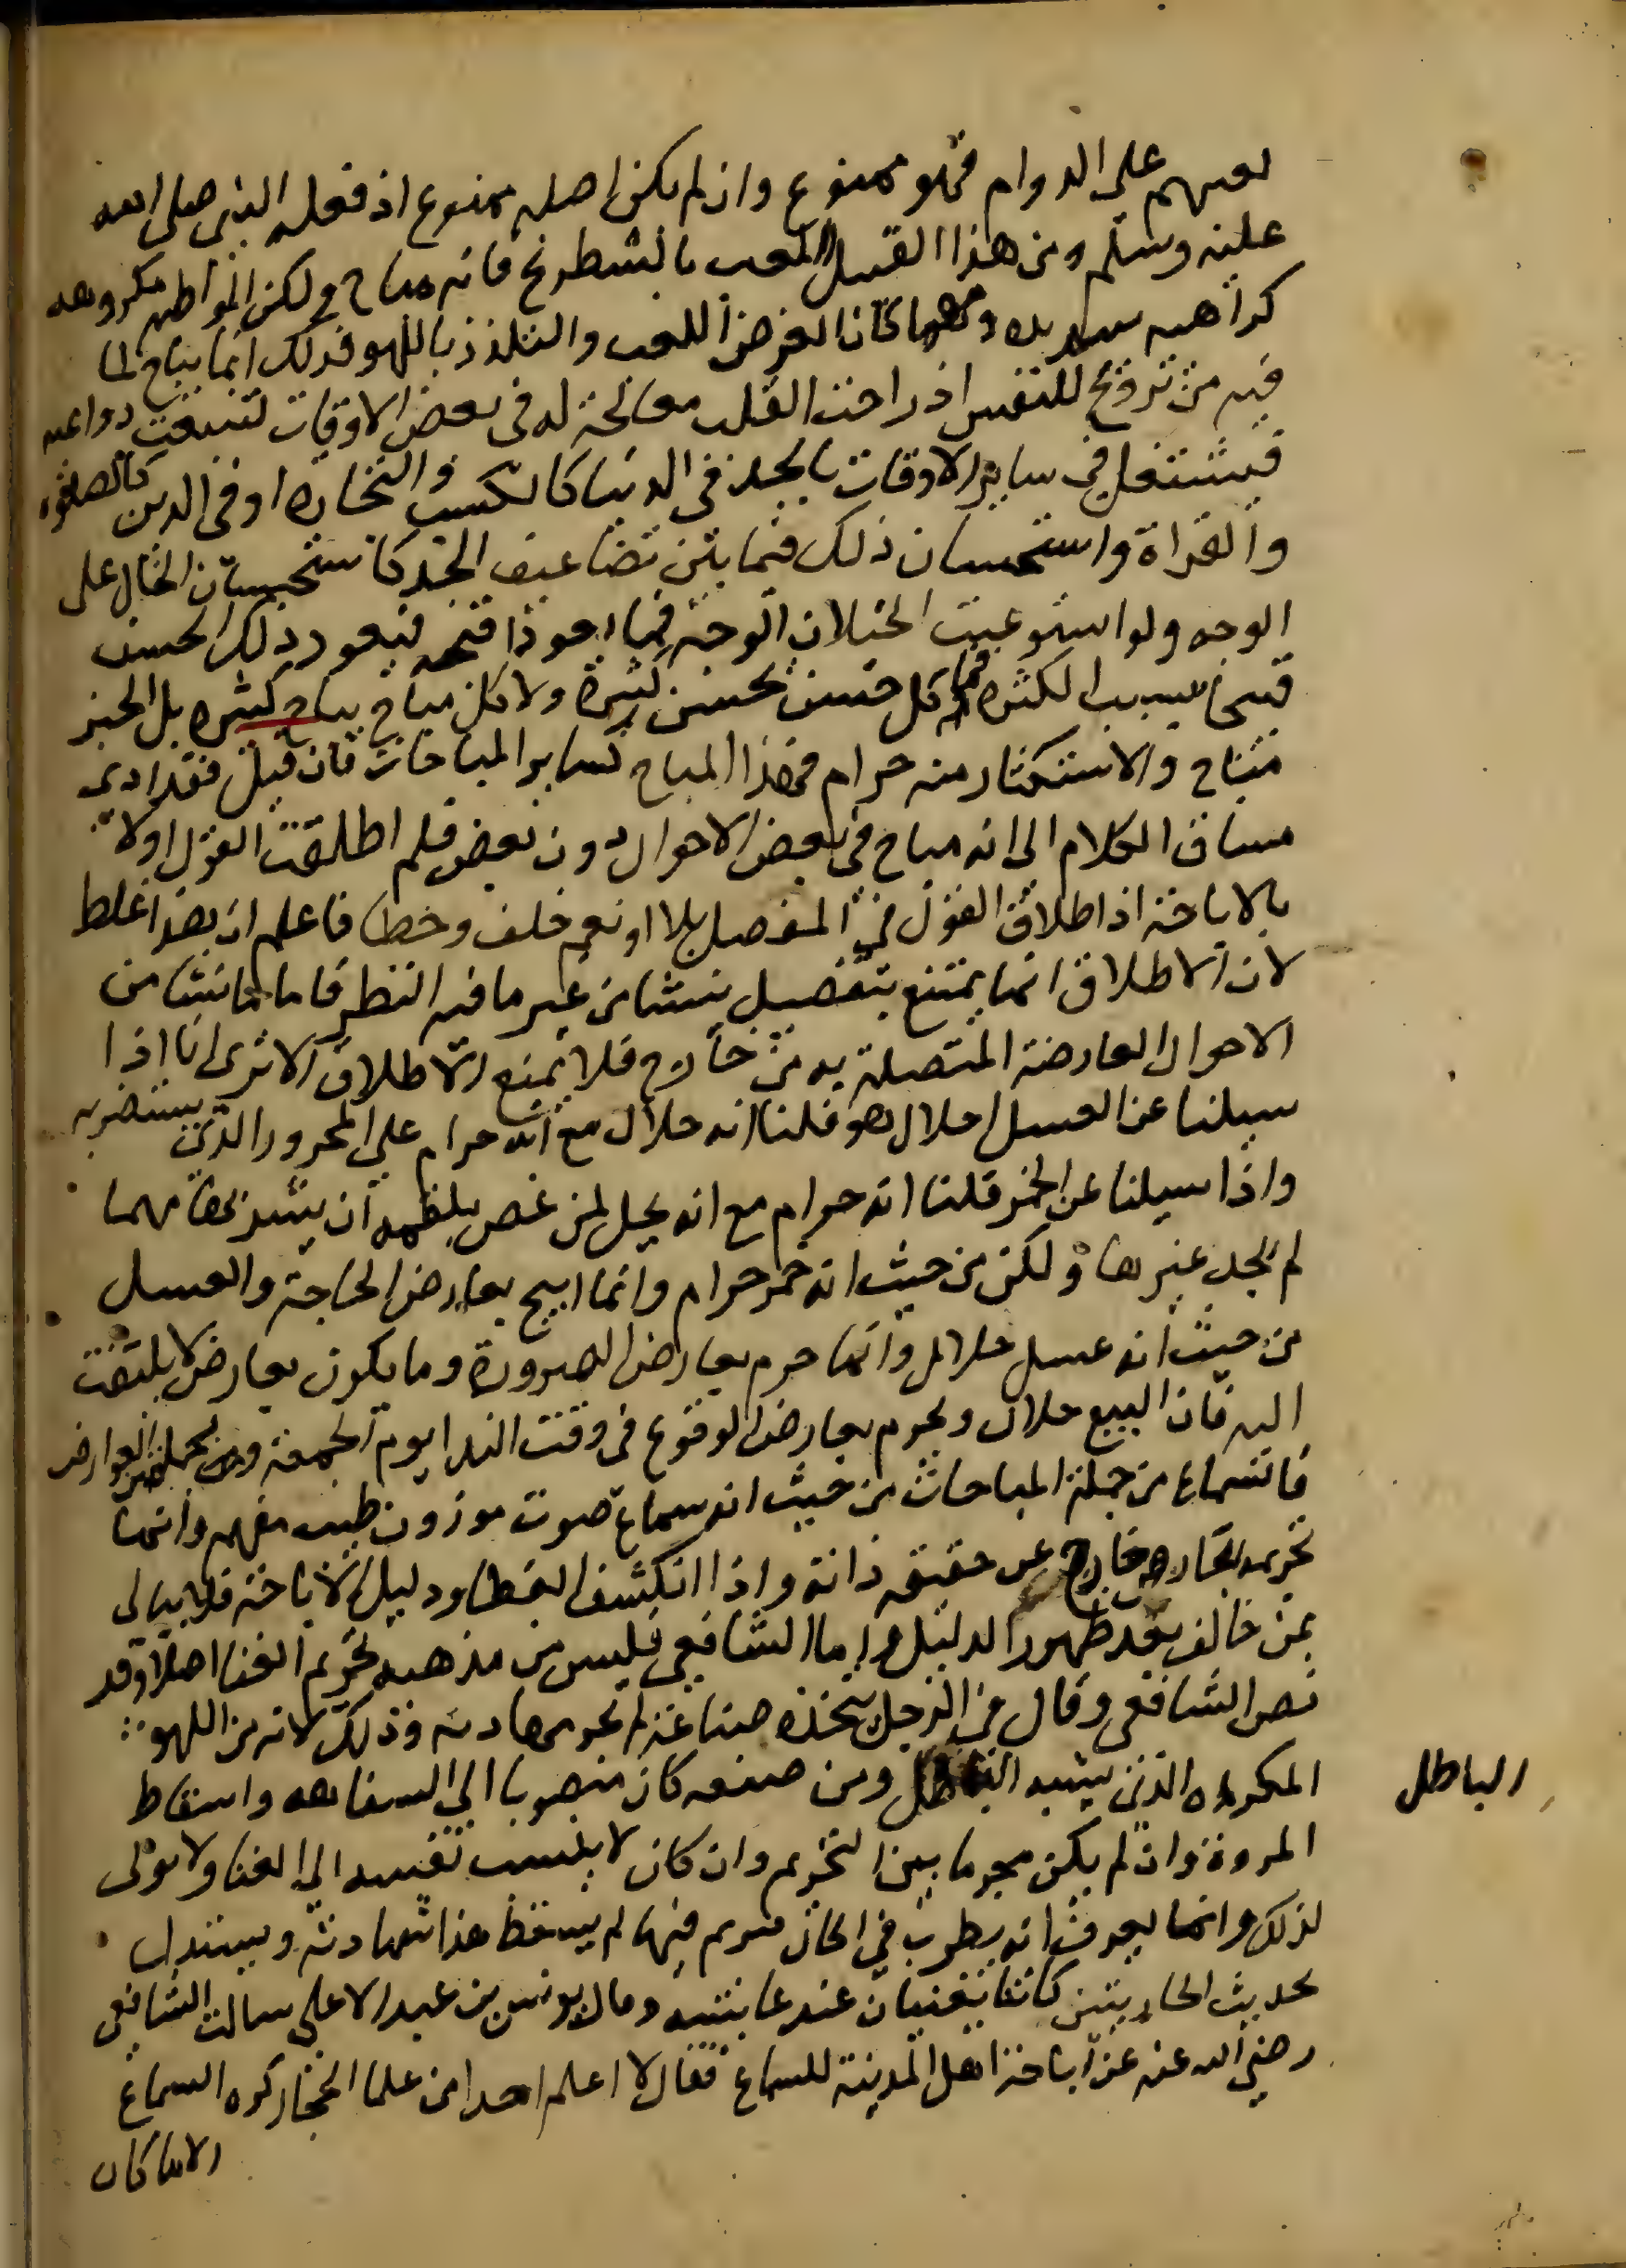 لعبهم على الدوام فهو ممنوع وان لم يكن اصله ممنوع اذ فعله النبى صلى الله
عليه وسلم ومن هذا القبيل اللعب بالشطرنج فانه مباح ولكن المواظبه مكروهه
كراهيه شديده ومهما كان الغرض اللعب والتلذذ باللهو فذلك انما يباح لما
فيه من ترويح للنفس اذ راحت القلب معالجة له فى بعض الاوقات لتنبعث دواعيه
فيشتغل فى ساير الاوقات بالجد فى الدنيا كالكسب والتجاره او فى الدين كالصلوه
والقراة واستحسان ذلك فيما بين تضاعيف الجد كاستحسان الخال على
الوجه ولو استوعبت الخيلان الوجه فما اقبح فيعود ذلك الحسن
قبحا بسبب الكثره فما كل حسن يحسن كثيرة ولا كل مباح يباح كثيره بل الخبز
مباح والاستكثار منه حرام فهذا المباح كساير المباحات فان قيل فقد ادى
مساق الكلام الى انه مباح فى بعض الاحوال دون بعض فلم اطلقت القول اولا
بالاباحة اذ اطلاق القول فى المفصل بلا او نعم خلف وخطا فاعلم ان هذا غلط
لان الاطلاق انما يمتنع بتفصيل ينشا من غير ما فيه النظر فاما ما ينشا من
الاحوال العارضة المتصلة به من خارج فلا يمنع الاطلاق الا ترى انا اذا
سيلنا عن العسل احلال هو قلنا انه حلال مع انه حرام على المحرور الذى يستضر به
واذا سيلنا عن الخمر قلنا انه حرام مع انه يحل لمن غص بلقمه ان يشربها مهما
لم يجد غيرها ولكن من حيث انه خمر حرام وانما ابيح بعارض الحاجة والعسل
من حيث انه عسل حلال وانما حرم بعارض الضرورة وما يكون بعارض لا يلتفت
اليه فان البيع حلال ويحرم بعارض الوقوع فى وقت الندا يوم الجمعة ومن جمله العوارض
فالسماع من جملة المباحات من حيث انه سماع صوت موزون طيب مفهم وانما
تحريمه لعارض خارج عن حقيقه ذاته واذا انكشف الغطا ودليل الاباحة فلا يبالى
بمن خالف بعد ظهور الدليل واما الشافعى فليس من مذهبه تحريم الغنا اصلا وقد
نص الشافعى وقال فى الرجل يتخذه صناعة لم تجز شهادته وذلك لانه من اللهو
المكروه الذى يشبه الباطل ومن صنعه كان منصوبا الى السفاهه واسقاط
الباطل
المروة وان لم يكن محرما بين التحريم وان كان لا ينسب نفسه الى الغنا ولا يوتى
لذلك وانما يعرف انه يطرب فى الحال فترنم فيها لم يسقط هذا شهادته ويستدل
بحديث الجاريتين كانتا يغنيان عند عايشه وقال يونس بن عبد الاعلى سالت الشافعى
رضى الله عنه عن اباحة اهل المدينة للسماع فقال لا اعلم احدا من علما الحجاز كره السماع
الا ما كان